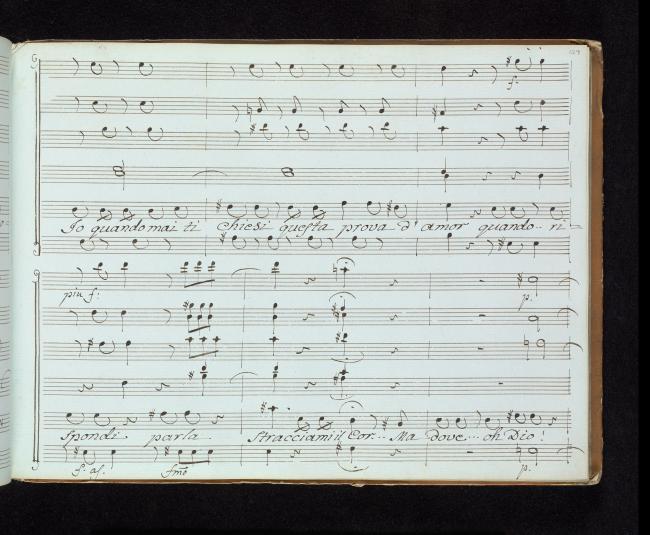 129
f.
Io quando mai ti chiesi questa prova d'amor quando.. ri=
piu f:
p.
spondi parla Stracciami il Cor... Ma dove... oh Dio!
f. as. fmo p.